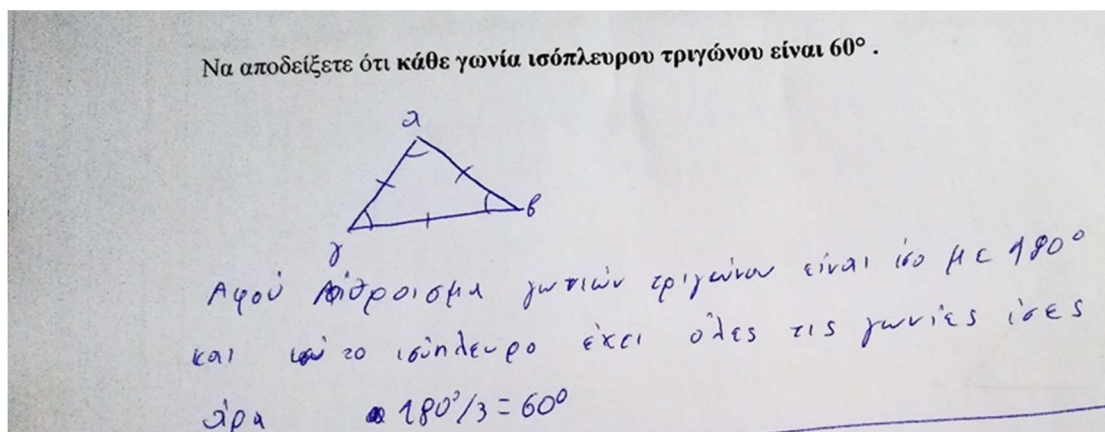 Να αποδείξετε ότι κάθε γωνία ισόπλευρου τριγώνου είναι 60° .
α
β
γ
Αφού άθροισμα γωνιών τριγώνου είναι ίσο με 180°
και το ισόπλευρο έχει όλες τις γωνίες ίσες
άρα 180°/3 = 60°